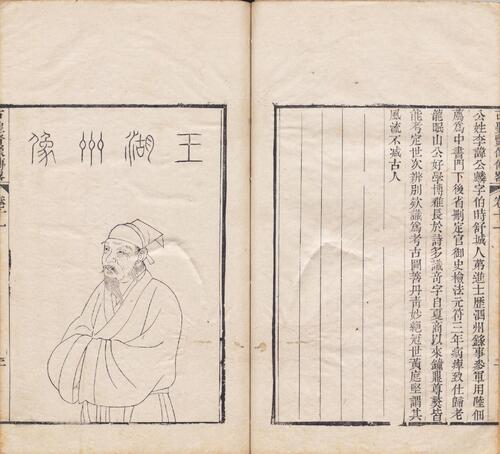 公姓李諱公麟字伯時舒城人第進士歷泗州錄事參軍用陸佃
薦為中書門下後省刪定官御史檢法元符三年病痹致仕歸老
龍眠山公好學博雅長於詩多識奇字自夏商以來鐘鼎尊彝皆
能考定世次辨別欵識為考古圖善丹青妙絕冠世黃庭堅謂其
風流不减古人
王湖州像